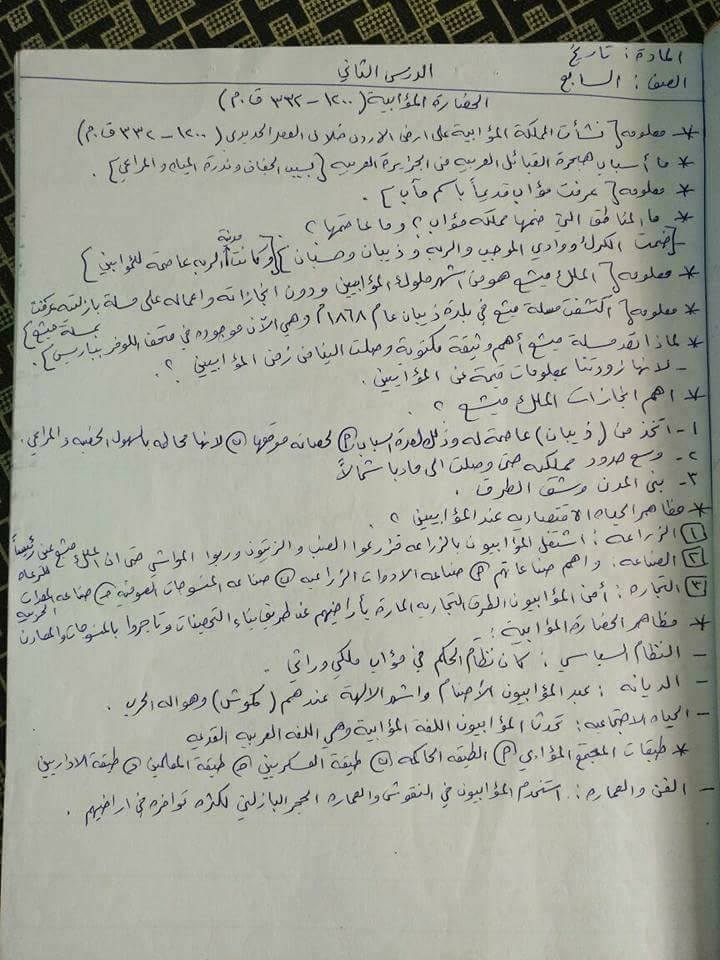 المادة: تاريخ
الصف: السابع
الدرس الثاني
الحضارة المؤابية (١٢٠٠ - ٣٣٢ ق.م)
* معلومة { نشأت المملكة المؤابية على ارض الاردن خلال العصر الحديدي (١٢٠٠ - ٣٣٢ ق.م)
* ما أسباب هجرة القبائل العربية من الجزيرة العربية { بسبب الجفاف وندرة المياه والمراعي }.
* معلومة { عرفت مؤاب قديماً باسم مآب }.
* ما المناطق التي ضمها مملكة مؤاب؟ وما عاصمتها؟
- { ضمت الكرك ووادي الموجب والربه وذيبان وحسبان } { وكانت مدينة الربه عاصمة للمؤابيين }
* معلومة { الملك ميشع هو من اشهر ملوك المؤابيين ودون انجازاته واعماله على مسلة بازلتيه عرفت بمسلة ميشع }
* معلومة { اكتشفت مسلة ميشع في بلدة ذيبان عام ١٨٦٨م وهي الآن موجوده في متحف اللوفر بباريس }.
* لماذا تعد مسلة ميشع أهم وثيقة مكتوبة وصلت الينا من زمن المؤابيين؟
- لانها زودتنا بمعلومات قيمة عن المؤابيين.
* اهم انجازات الملك ميشع؟
١- اتخذ من (ذيبان) عاصمة له وذلك لعدة اسباب أ) لحصانه موقعها ب) لانها محاطه بالسهول الخصبه والمراعي.
٢- وسع حدود مملكته حتى وصلت الى مادبا شمالاً
٣- بنى المدن وشق الطرق.
* مظاهر الحياه الاقتصاديه عند المؤابيين؟
١ الزراعة: اشتغل المؤابيون بالزراعه فزرعوا العنب والزيتون وربوا المواشي حتى ان الملك ميشع عين رئيساً للرعاه
٢ الصناعة: واهم صناعاتهم أ) صناعة الادوات الزراعيه ب) صناعه المنسوجات الصوفية ج) صناعه المعدات الحربية
٣ التجارة: أمن المؤابيون الطرق التجاريه المارة بأراضيهم عن طريق بناء التحصينات وتاجروا بالمنسوجات والمعادن
* مظاهر الحضارة المؤابية:
- النظام السياسي: كان نظام الحكم في مؤاب ملكي وراثي.
- الديانه: عبد المؤابيون الأصنام واشهر الالهة عندهم (كموش) وهو اله الحرب.
- الحياه الاجتماعيه: تحدث المؤابيون اللغة المؤابية وهي اللغه العربيه القديمه
* طبقات المجتمع المؤابي أ) الطبقه الحاكمه ب) طبقة العسكريين ج) طبقة المعلمين د) طبقة الاداريين
- الفن والعماره: استخدم المؤابيون في النقوش والعماره الحجر البازلتي لكثره توافره في اراضيهم.